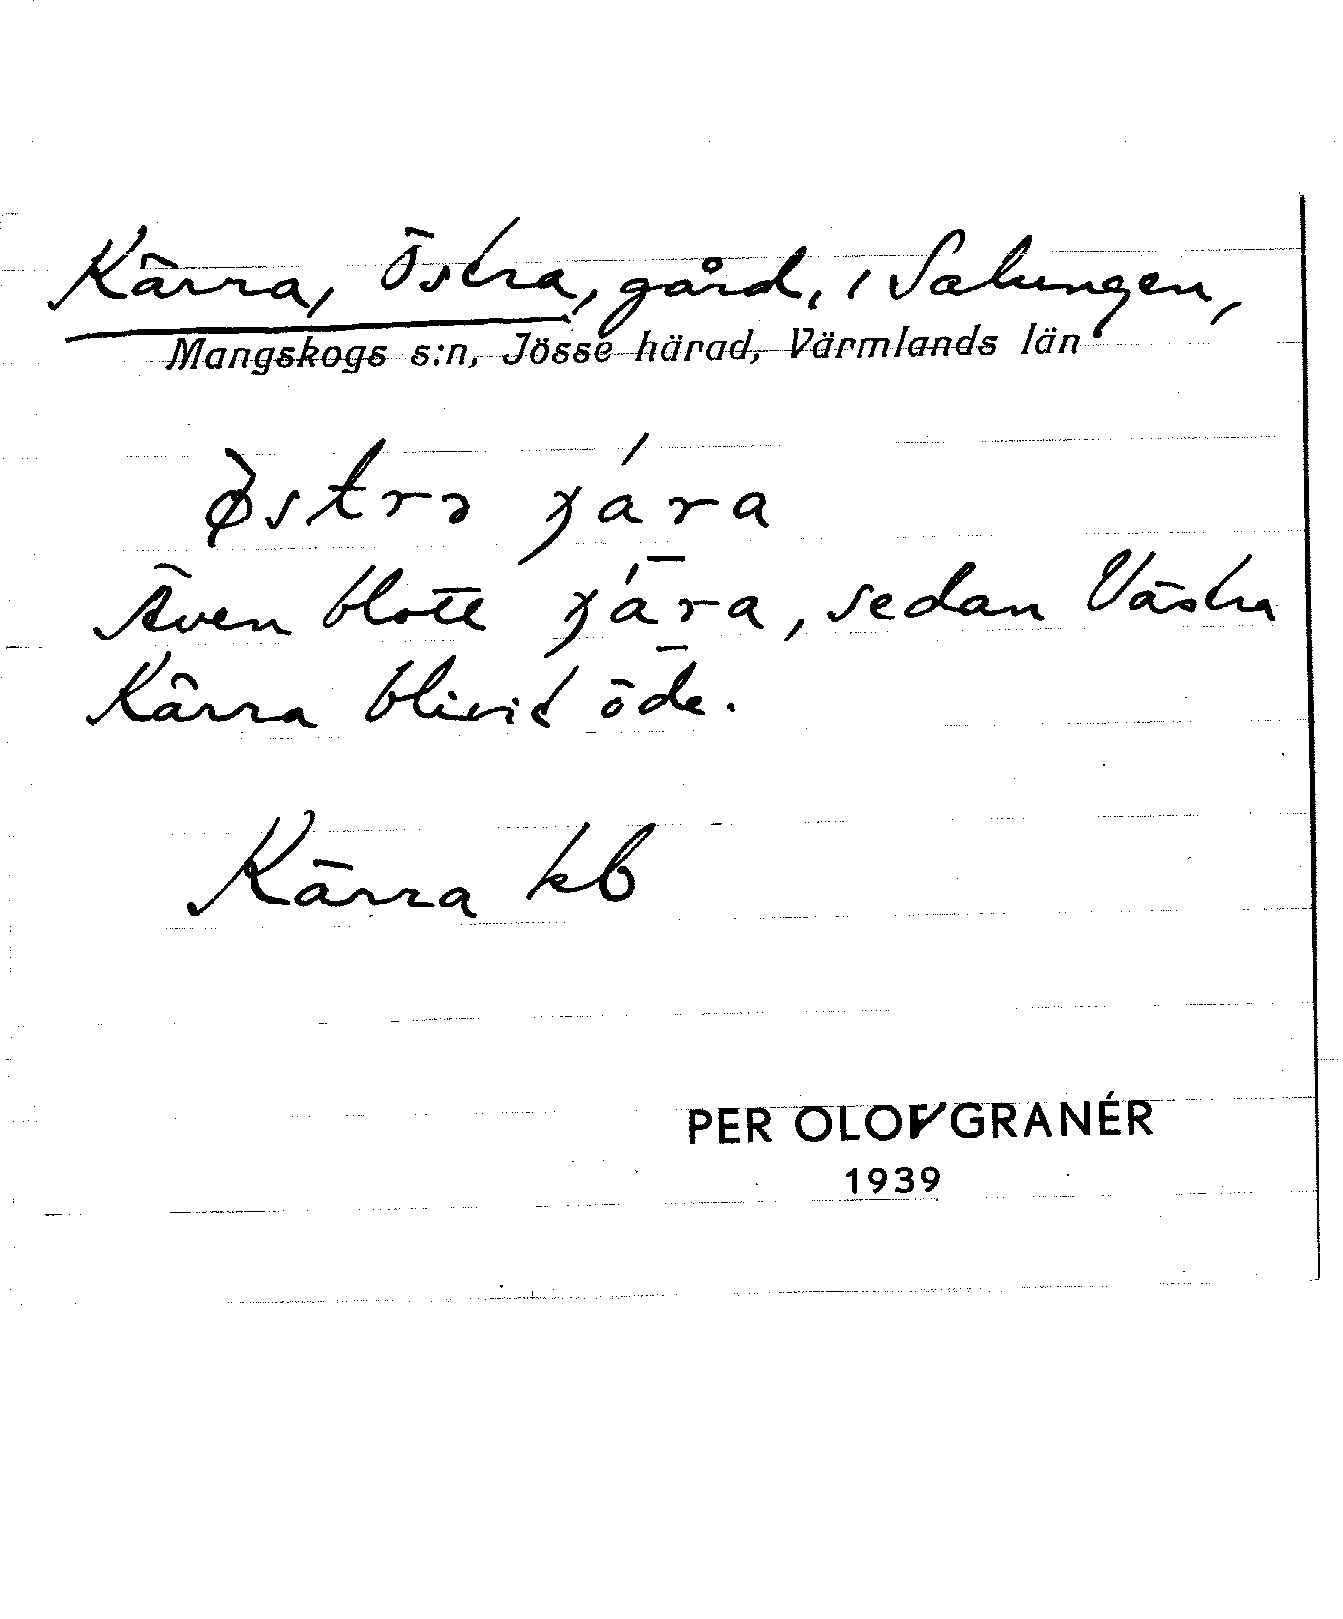 Kärra, Östra, gård, i Salungen,
Mangskogs s:n, Jösse härad, Värmlands län
Även blott , sedan Västra
Kärra blivit öde.
Kärra kb
PER OLOF GRANÉR
1939